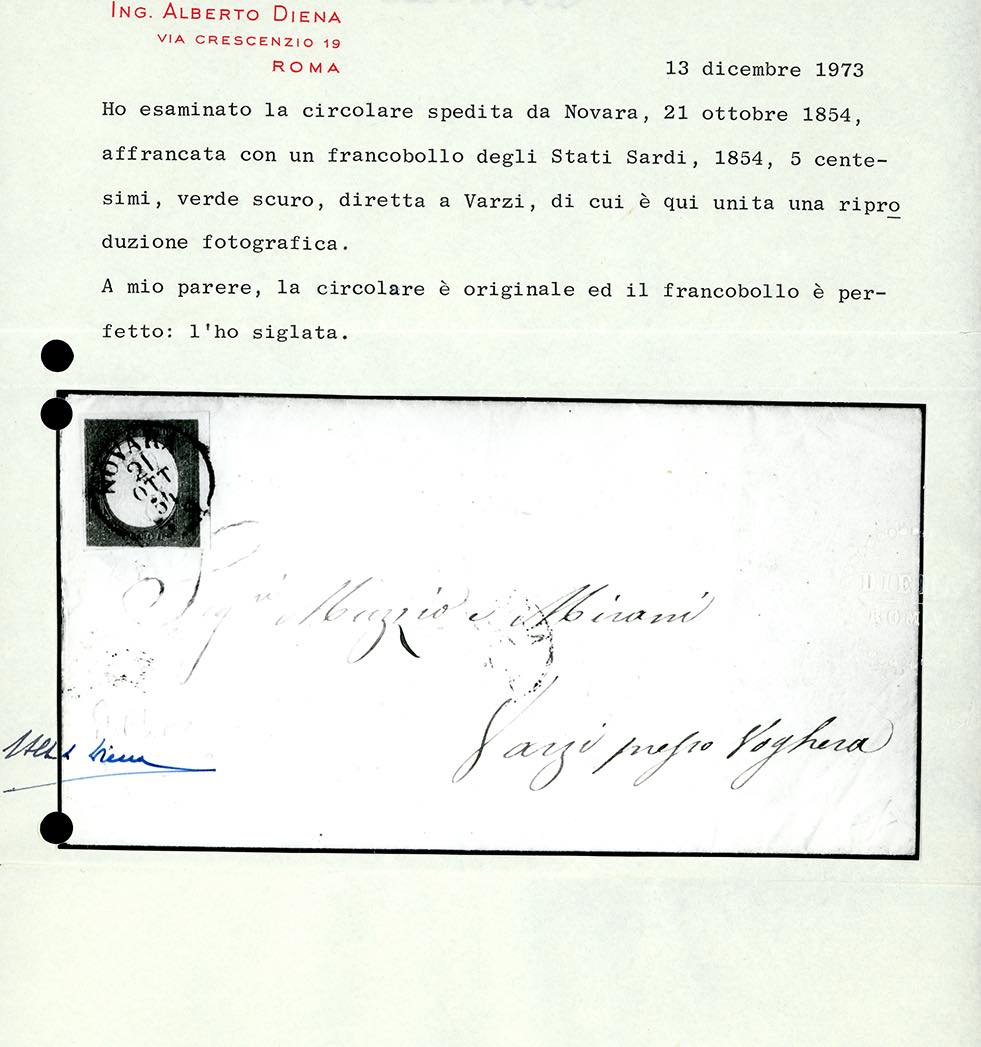 ING. ALBERTO DIENA
VIA CRESCENZIO 19
ROMA
13 dicembre 1973
Ho esaminato la circolare spedita da Novara, 21 ottobre 1854,
affrancata con un francobollo degli Stati Sardi, 1854, 5 cente-
simi, verde scuro, diretta a Varzi, di cui è qui unita una ripro
duzione fotografica.
A mio parere, la circolare è originale ed il francobollo è per-
fetto: l'ho siglata.
NOVARA
21
OTT
54
Sig.ri Muzzio e Mirani
Varzi presso Voghera
Diena
ROMA